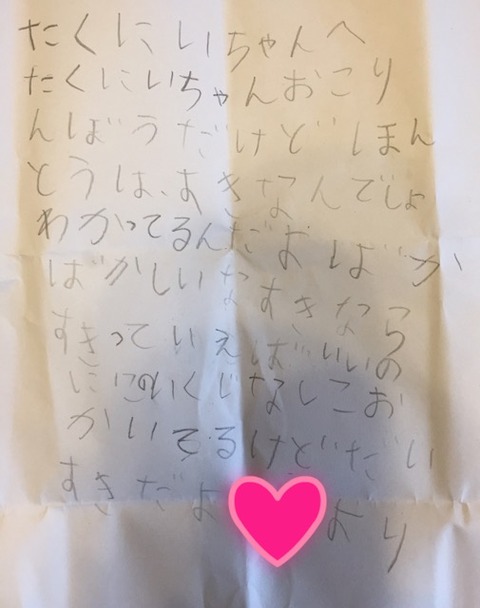 たくにいちゃんへ
たくにいちゃんおこり
んぼうだけどほん
とうは、すきなんでしょ
わかってるんだおばか
ばかしいなすきなら
すきっていえばいいの
にこのいくじなしこお
かいてるけどだい
すきだよ より